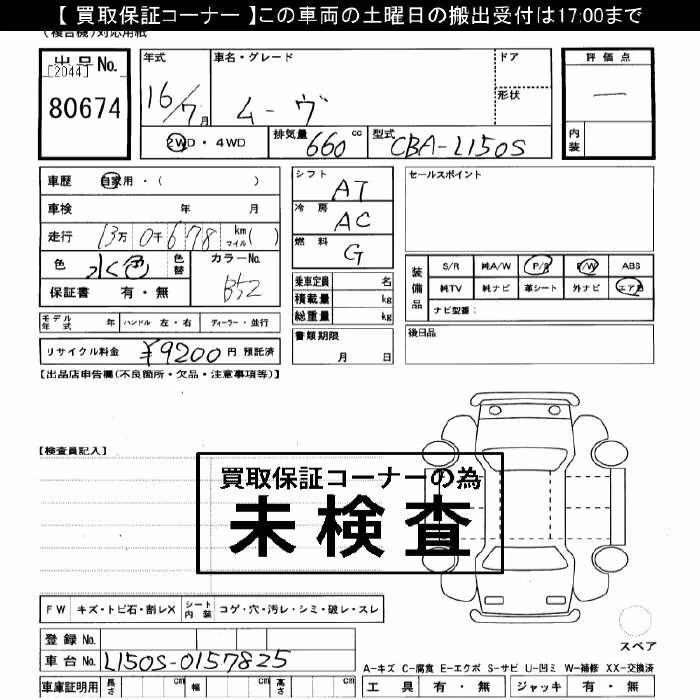 【 買取保証コーナー 】この車両の土曜日の搬出受付は17:00まで
(複合機)対応用紙
出品No.
[2044]
80674
年式
16/7月
車名・グレード
ムーヴ
ドア
形状
評価点
一
内装
2WD・4WD
排気量 660 cc
型式 CBA-L150S
車歴 自家用・( )
車検 年 月
走行 13万 0千 678 km マイル( )
色 水色 色替
カラーNo.
保証書 有・無
モデル年式 年 ハンドル 左・右 ディーラー・並行
リサイクル料金 ¥9200円 預託済
シフト AT
冷房 AC
燃料 G
乗車定員 名
積載量 kg
総重量 kg
書類期限
月 日
セールスポイント
装備品
S/R 純A/W P/S P/W ABS
純TV 純ナビ 革シート 外ナビ エアB
ナビ型番:
後日品
【出品店申告欄(不良箇所・欠品・注意事項等)】
【検査員記入】
買取保証コーナーの為
未検査
FW キズ・トビ石・割レX シート内装 コゲ・穴・汚レ・シミ・破レ・スレ
登録No.
車台No. L150S-0157825
車庫証明用 長さ cm 幅 cm 高さ cm
スペア
A-キズ C-腐食 E-エクボ S-サビ U-凹ミ W-補修 XX-交換済
工具 有・無 ジャッキ 有・無